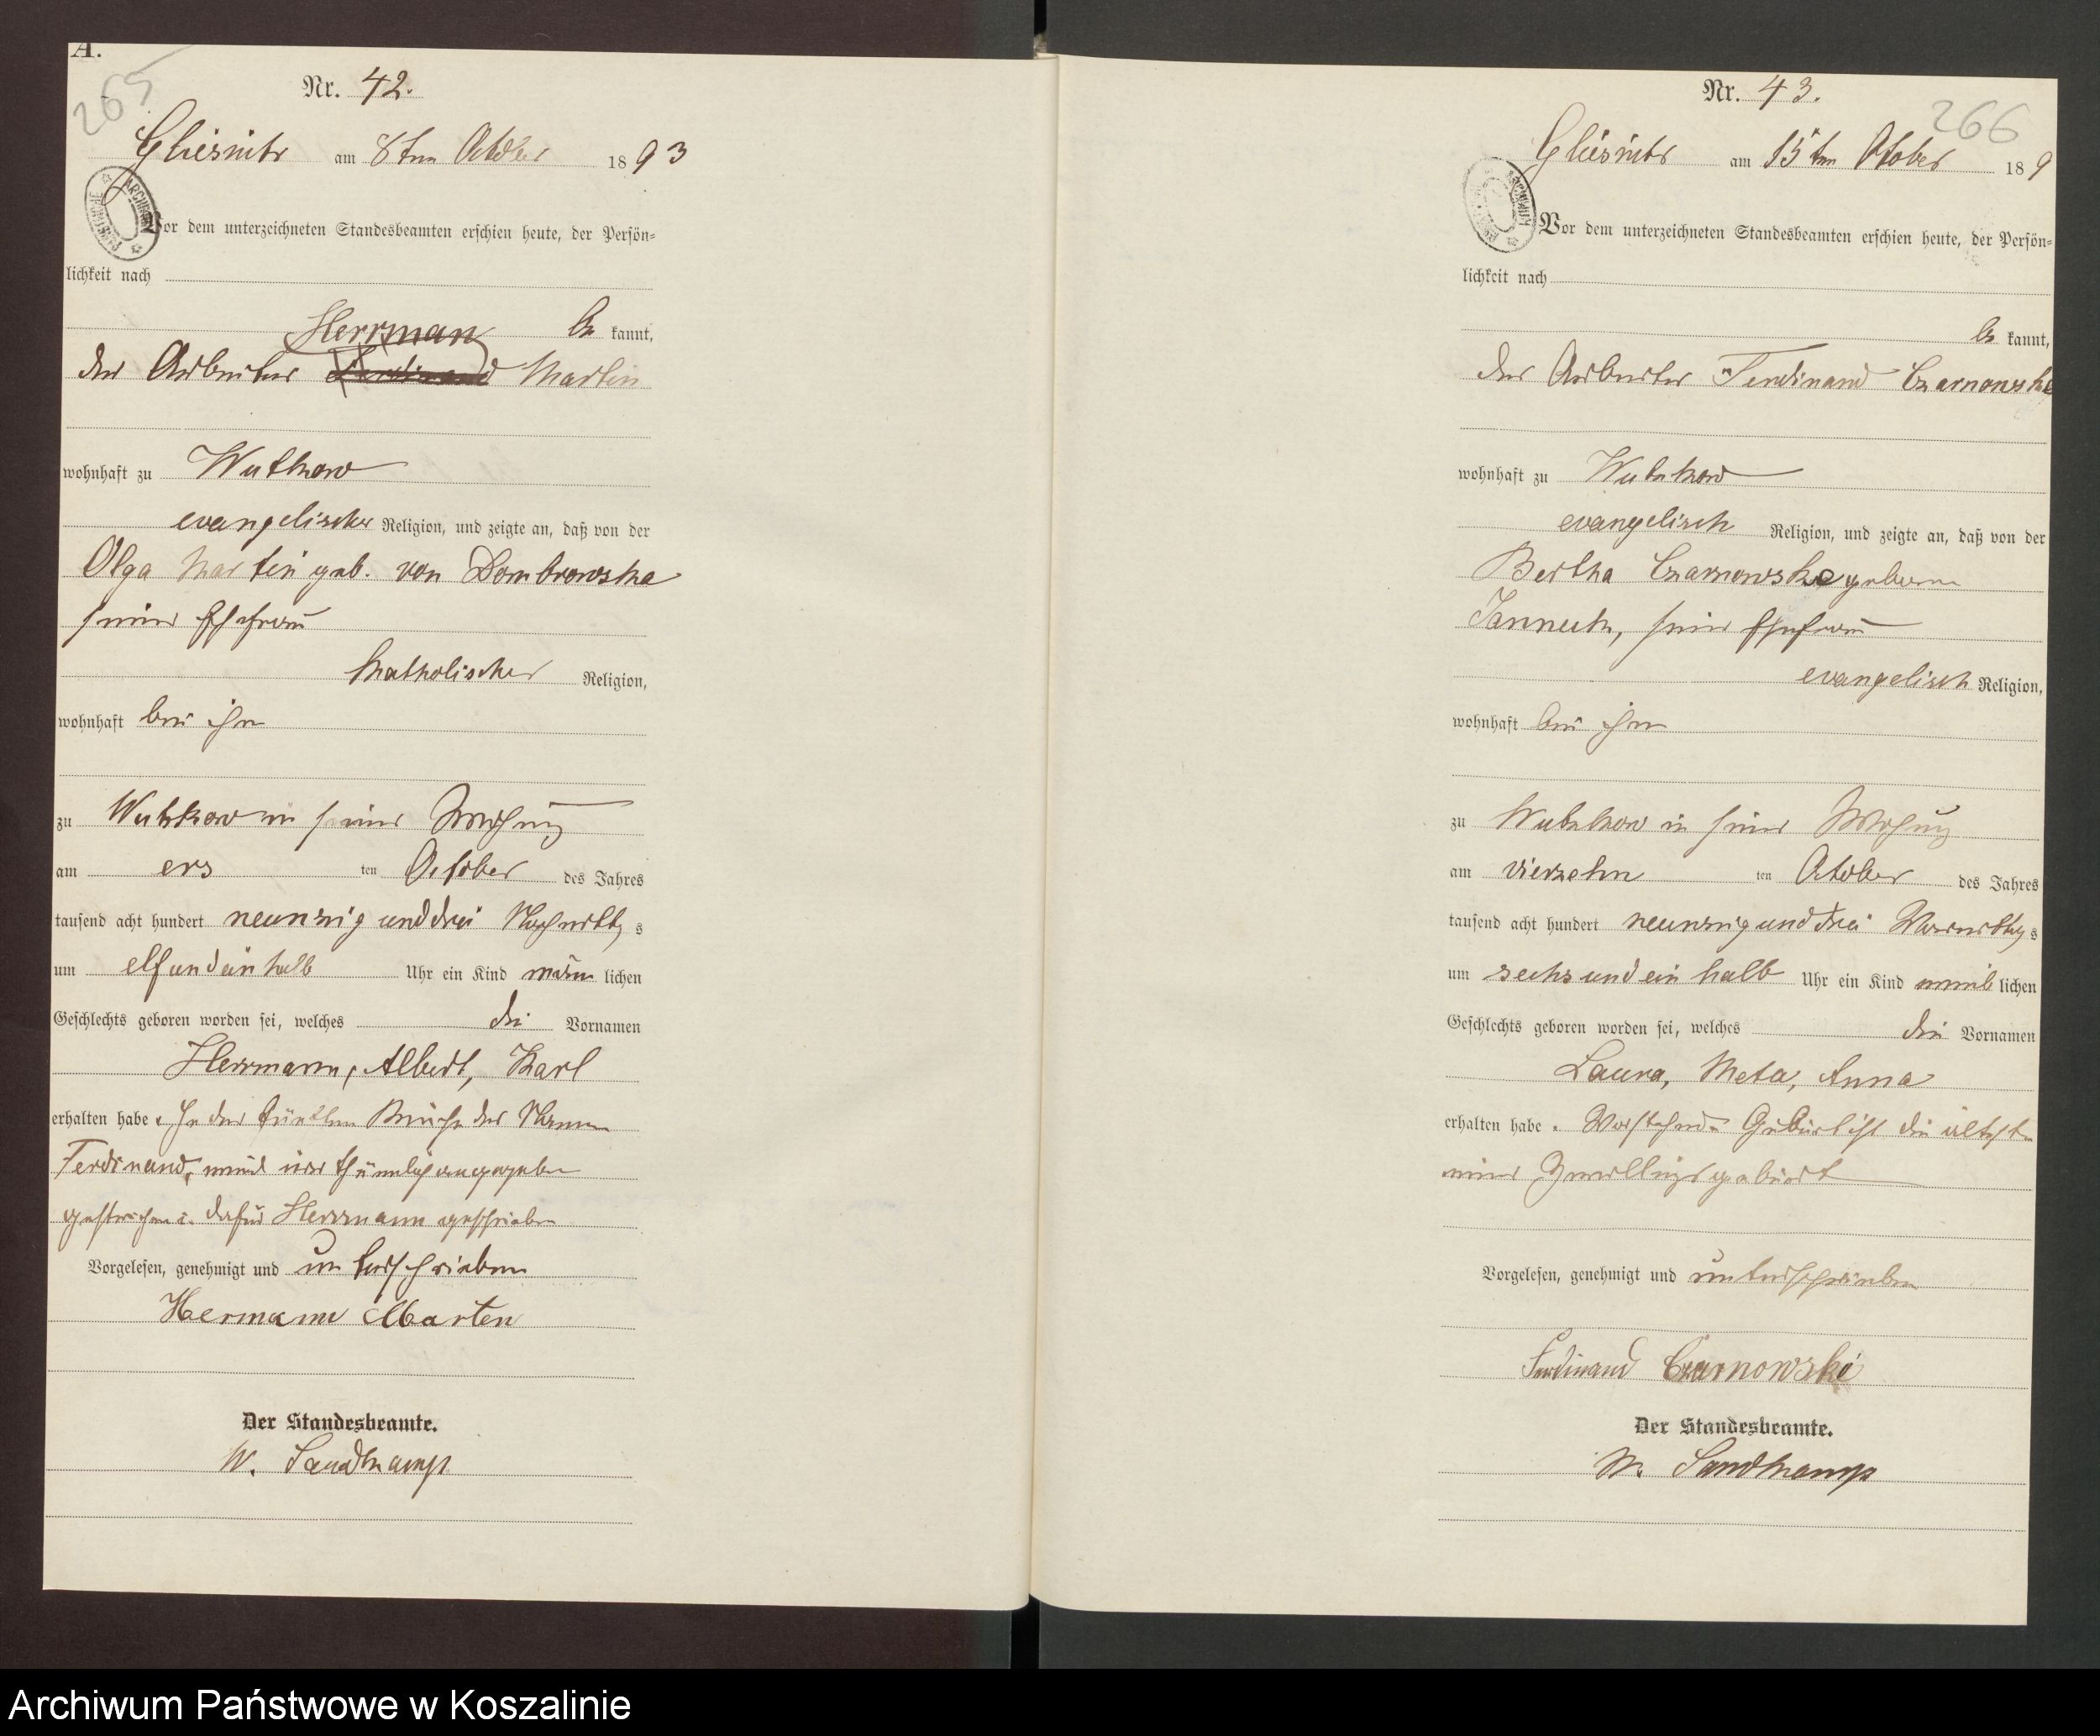 A.
265
Nr. 42.
Gliesnitz am 8ten October 1893
Vor dem unterzeichneten Standesbeamten erschien heute, der Persön=
lichkeit nach
Herrman be kannt,
der Arbeiter Ferdinand Martin
wohnhaft zu Wutzkow
evangelischer Religion, und zeigte an, daß von der
Olga Martin geb. von Dombrowska
seiner Ehefrau
katholischer Religion,
wohnhaft bei ihm
zu Wutzkow in seiner Wohnung
am ers ten October des Jahres
tausend acht hundert neunzig und drei Nachmittags
um elf und ein halb Uhr ein Kind männ lichen
Geschlechts geboren worden sei, welches die Vornamen
Herrmann, Albert, Karl
erhalten habe. In der fünften Reihe der Namen
Ferdinand, weil irrthümlich angegeben
gestrichen u. dafür Herrmann geschrieben
Vorgelesen, genehmigt und unterschrieben
Hermann Marten
Der Standesbeamte.
W. Sandkamp
Nr. 43.
266
Gliesnitz am 15ten October 189
Vor dem unterzeichneten Standesbeamten erschien heute, der Persön=
lichkeit nach
be kannt,
der Arbeiter Ferdinand Czarnowske
wohnhaft zu Wutzkow
evangelisch Religion, und zeigte an, daß von der
Bertha Czarnowske geborene
seiner Ehefrau
evangelisch Religion,
wohnhaft bei ihm
zu Wutzkow in seiner Wohnung
am vierzehn ten October des Jahres
tausend acht hundert neunzig und drei Vormittags
um sechs und ein halb Uhr ein Kind weib lichen
Geschlechts geboren worden sei, welches die Vornamen
Laura, Meta, Anna
erhalten habe. Vorstehende Geburt ist die älteste
einer Zwillingsgeburt
Vorgelesen, genehmigt und unterschrieben
Ferdinand Czarnowski
Der Standesbeamte.
W. Sandkamp
Archiwum Państwowe w Koszalinie